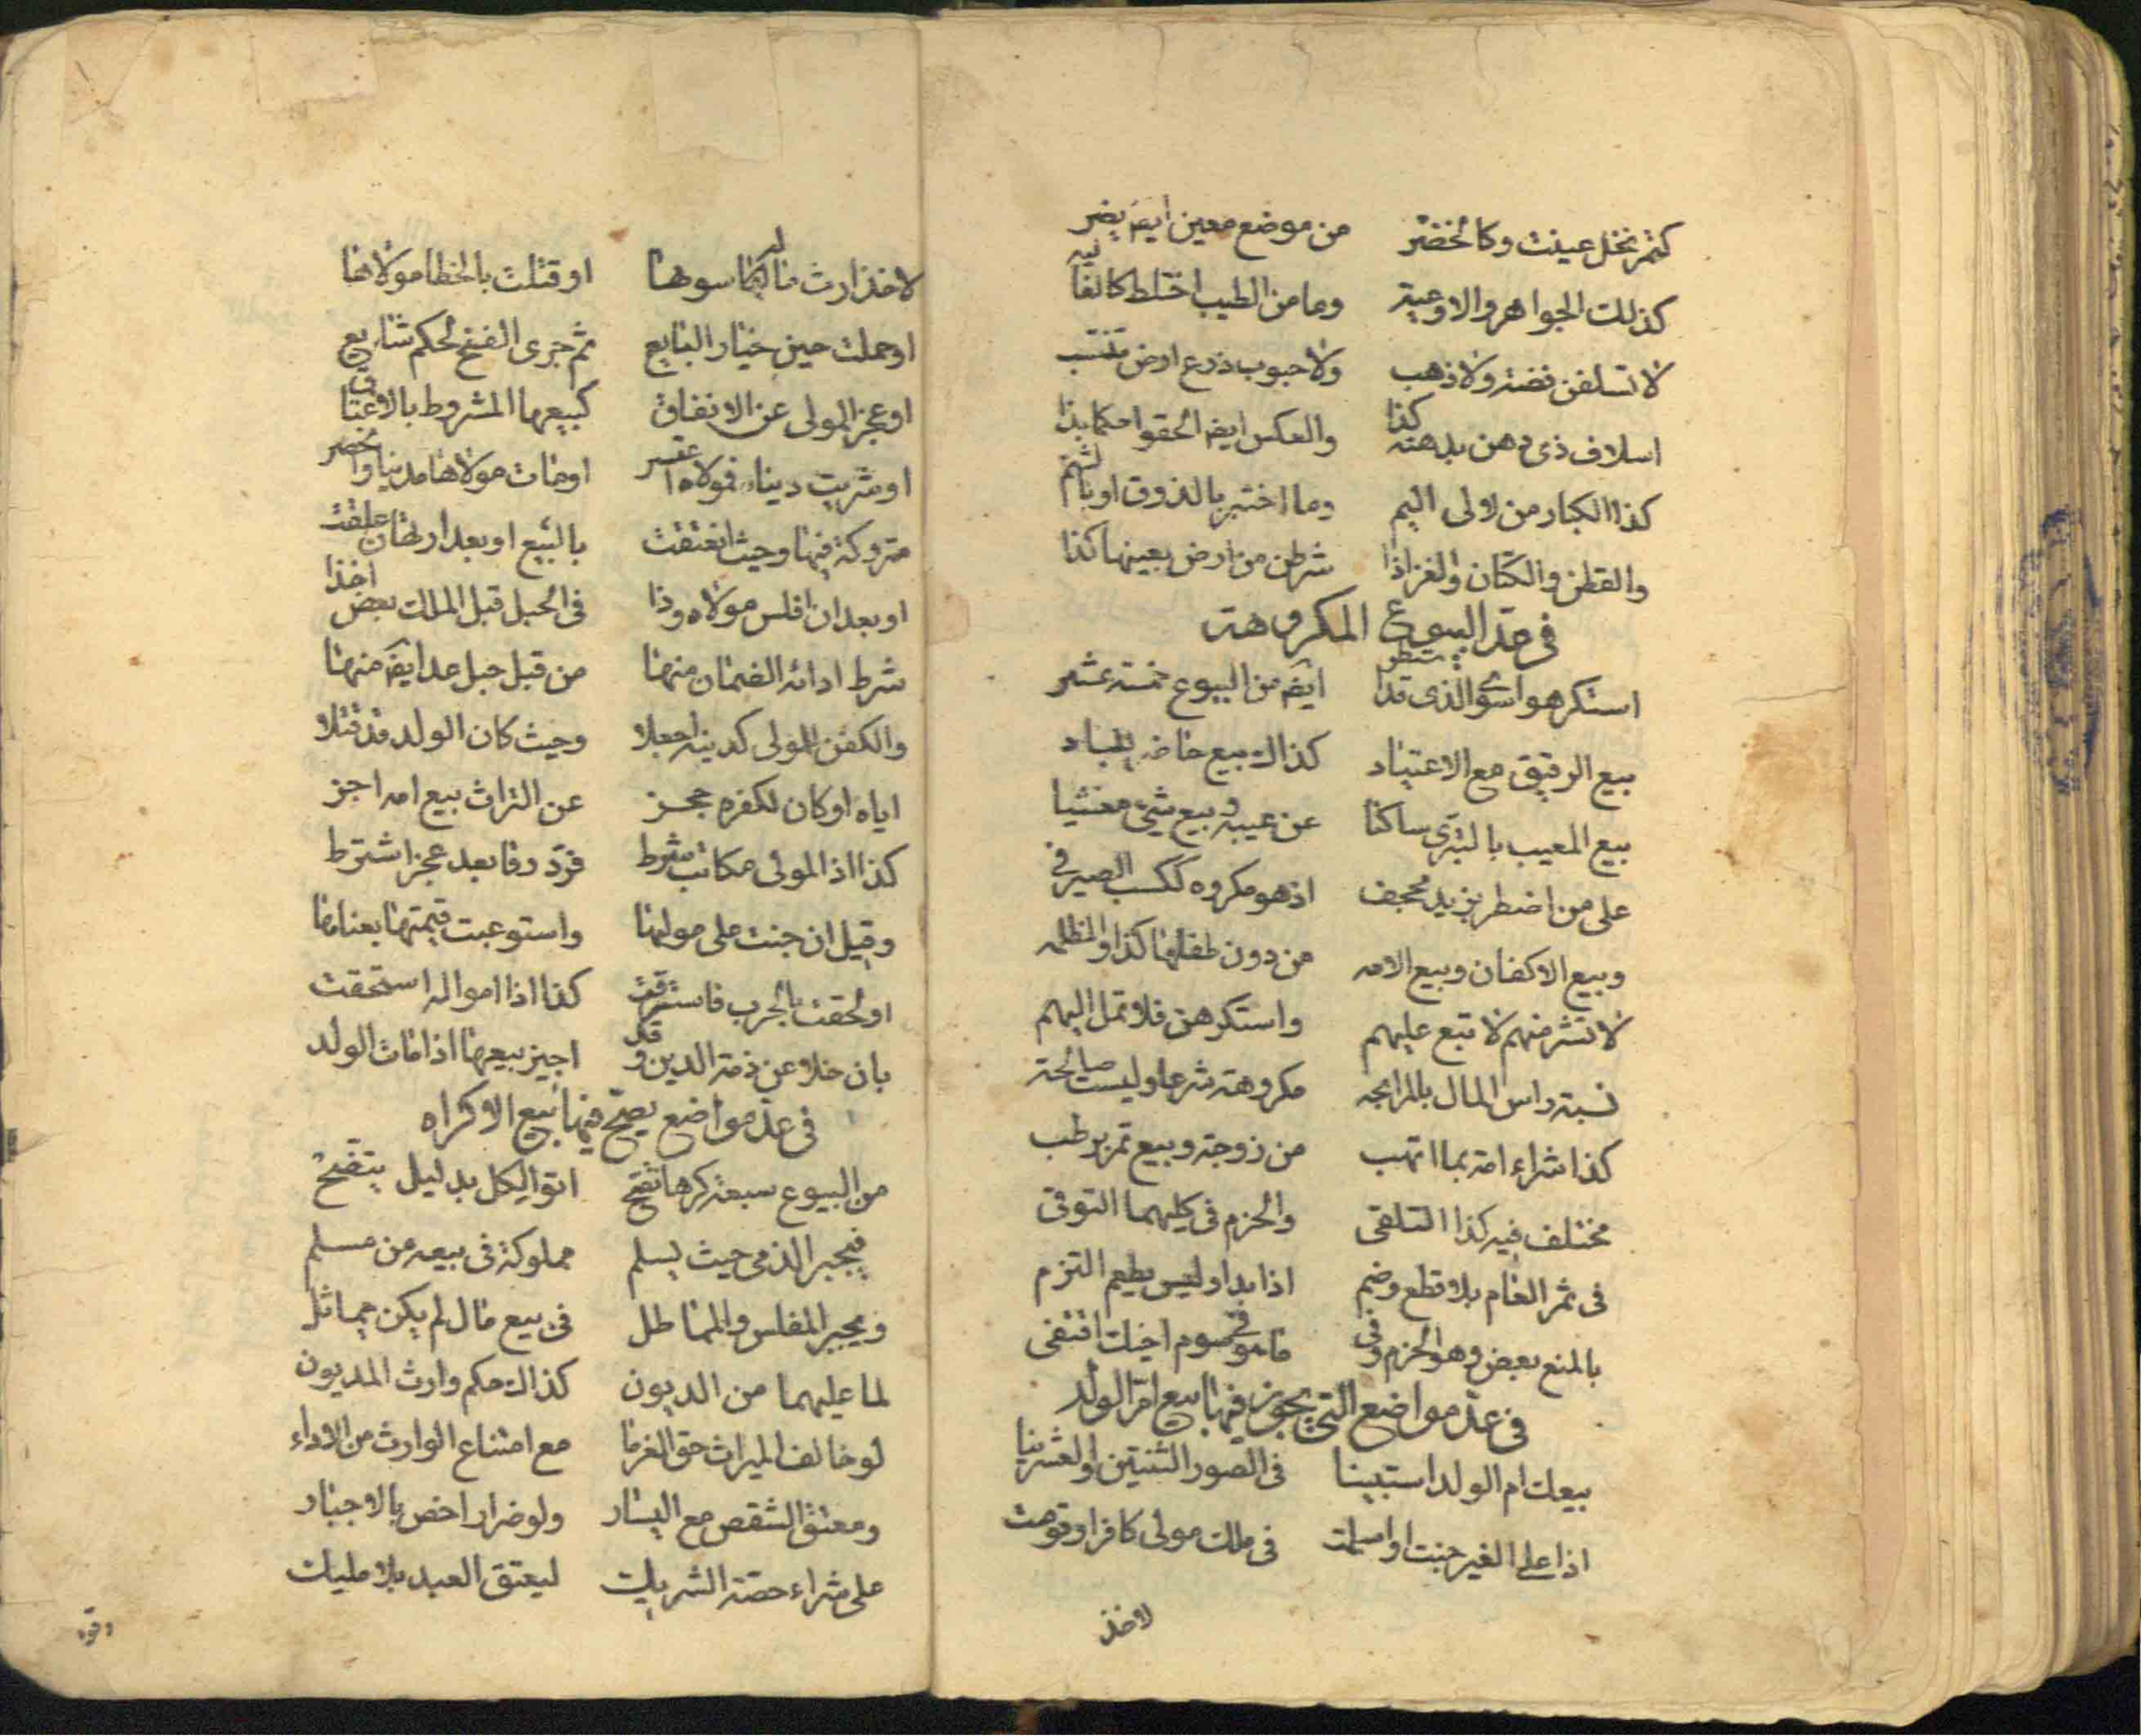 كثمر نخل عينت وكالخضر من موضع معين ايضا يضر
كذلك الجواهر والاوعية وما من الطيب اختلط كالغالية
لا تسلفن فضة ولا ذهب ولا حبوب زرع ارض تنتسب
اسلاف ذى دهن بدهنه كذا والعكس ايضا الحقوا حكما بذا
كذا الكبار من لولى اليم وما اختبر بالذوق او بالشم
والقطن والكتان والغز اذا شرطن من ارض بعينها كذا
فى عد البيوع المكروهة
استكرهوا سوى الذى قد استطر ايضا من البيوع خمسة عشر
بيع الرقيق مع الاعتياد كذاك بيع حاضر لباد
بيع المعيب بالتبرى ساكتا عن عيبه وبيع شئ
على من اضطر بزيد مجحف اذ هو مكروه ككسب الصيرفى
وبيع الاكفان وبيع الامه من دون طفلها كذا والمظلمه
لا تشتر منهم لا تبع عليهم واستكرهن فلا تمل اليهم
نسبة راس المال بالمرابحه مكروهة شرعا وليست صالحة
كذا شراء امة بما اتهب من زوجة وبيع تمر برطب
مختلف فيه كذا التلقى والحزم فى كليهما التوقى
فى ثمر العام بلا قطع وضم اذا بدا وليس يطعم التزم
بالمنع بعض وهو الحزم وفى ما هو فى سوم اخيك اقتفى
فى عد مواضع التى يجوز فيها بيع ام الولد
بيعك ام الولد استبينا فى الصور الثنتين والعشرينا
اذا على الغير جنت او اسلمت فى ملك مولى كافرا وقومت
لاخذ
لاخذ ارث مالكها سوها او قتلت بالخطا مولاها
او حملت حين خيار البايع ثم جرى الفسخ لحكم شايع
او عجز المولى عن الانفاق كبيعها المشروط بالاعتاق
او شريت دينا فمولاه اعتسر او مات مولاها مدينا وانحصر
متروكة فيها وحيث انعتقت بالبيع او بعد ارتهان علقت
او بعد ان افلس مولاه وذا فى الحبل قبل الملك بعض اخذا
شرط ادائه الضمان منها من قبل حبل عد ايضا منها
والكفن المولى كدينه اجعلا وحيث كان الولد قد قتلا
اياه او كان لكفره حجز عن التراث بيع امه اجز
كذا اذ المولى مكاتب شرط فرد رقا بعد عجز اشترط
وقيل ان جنت على مولاها واستوعبت قيمتها بعناها
او لحقت بالحرب فاسترقت كذا اذا امواله استحقت
بان خلا عن ذمة الدين وقد اجيز بيعها اذا مات الولد
فى عد مواضع يصح فيها بيع الاكراه
من البيوع سبعة كرها تصح اتوا لكل بدليل يتضح
فيجبر الذمى حيث يسلم مملوكة فى بيعه من مسلم
ويجبر المفلس والمماطل فى بيع مال لم يكن مماثل
لما عليهما من الديون كذاك حكم وارث المديون
لو خالف الميراث حق الغرما مع امتناع الوارث من الاداء
ومعتق الشقص مع اليسار ولو ضرارا خص بالاجبار
على شراء حصة الشريك ليعتق العبد بلا مليك